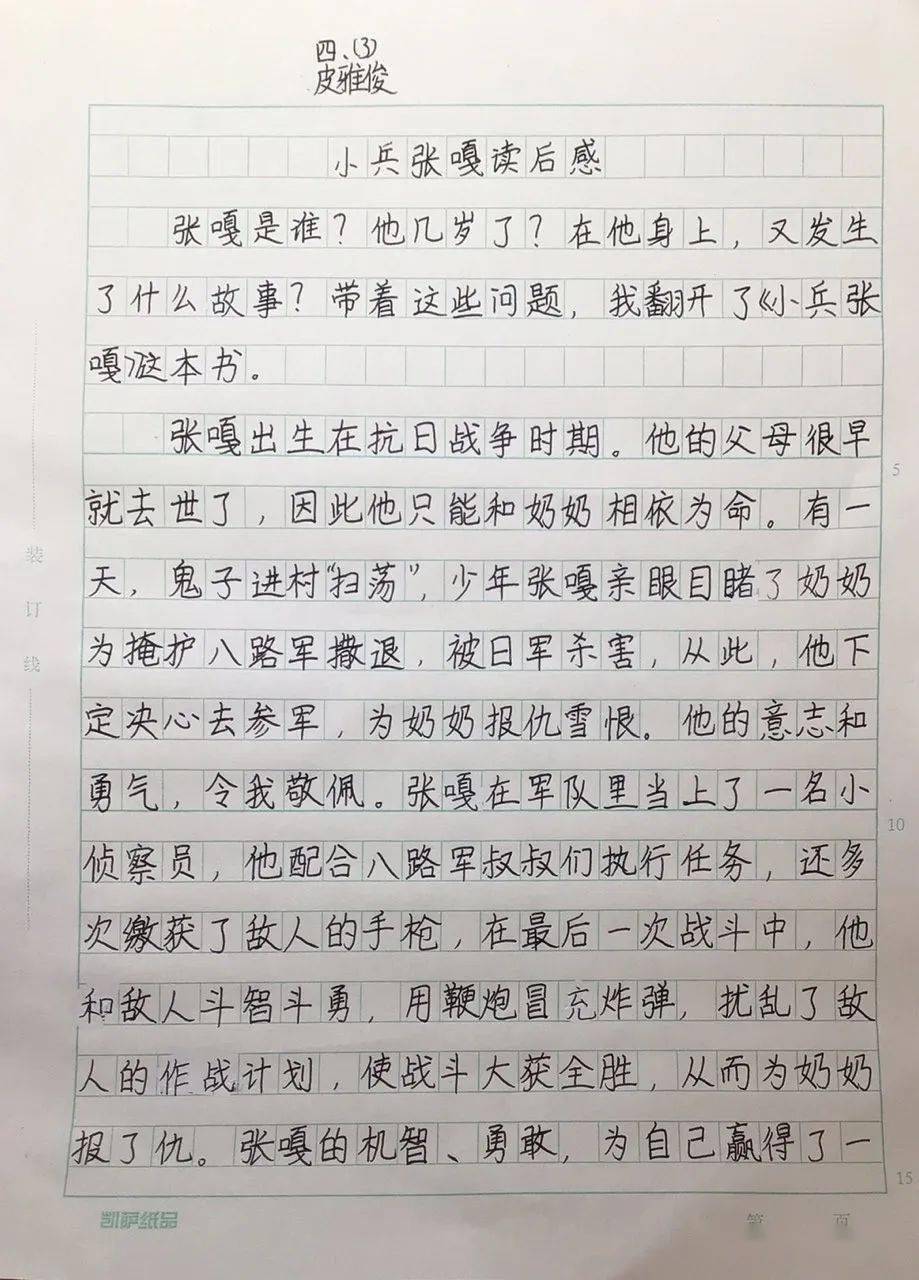 四、(3)
皮雅俊
小兵张嘎读后感
张嘎是谁？他几岁了？在他身上，又发生
了什么故事？带着这些问题，我翻开了《小兵张
嘎》这本书。
张嘎出生在抗日战争时期。他的父母很早
就去世了，因此他只能和奶奶相依为命。有一
天，鬼子进村“扫荡”，少年张嘎亲眼目睹了奶奶
为掩护八路军撤退，被日军杀害，从此，他下
定决心去参军，为奶奶报仇雪恨。他的意志和
勇气，令我敬佩。张嘎在军队里当上了一名小
侦察员，他配合八路军叔叔们执行任务，还多
次缴获了敌人的手枪，在最后一次战斗中，他
和敌人斗智斗勇，用鞭炮冒充炸弹，扰乱了敌
人的作战计划，使战斗大获全胜，从而为奶奶
报了仇。张嘎的机智、勇敢，为自己赢得了一
5
10
15
装
订
线
凯萨纸品
第 页